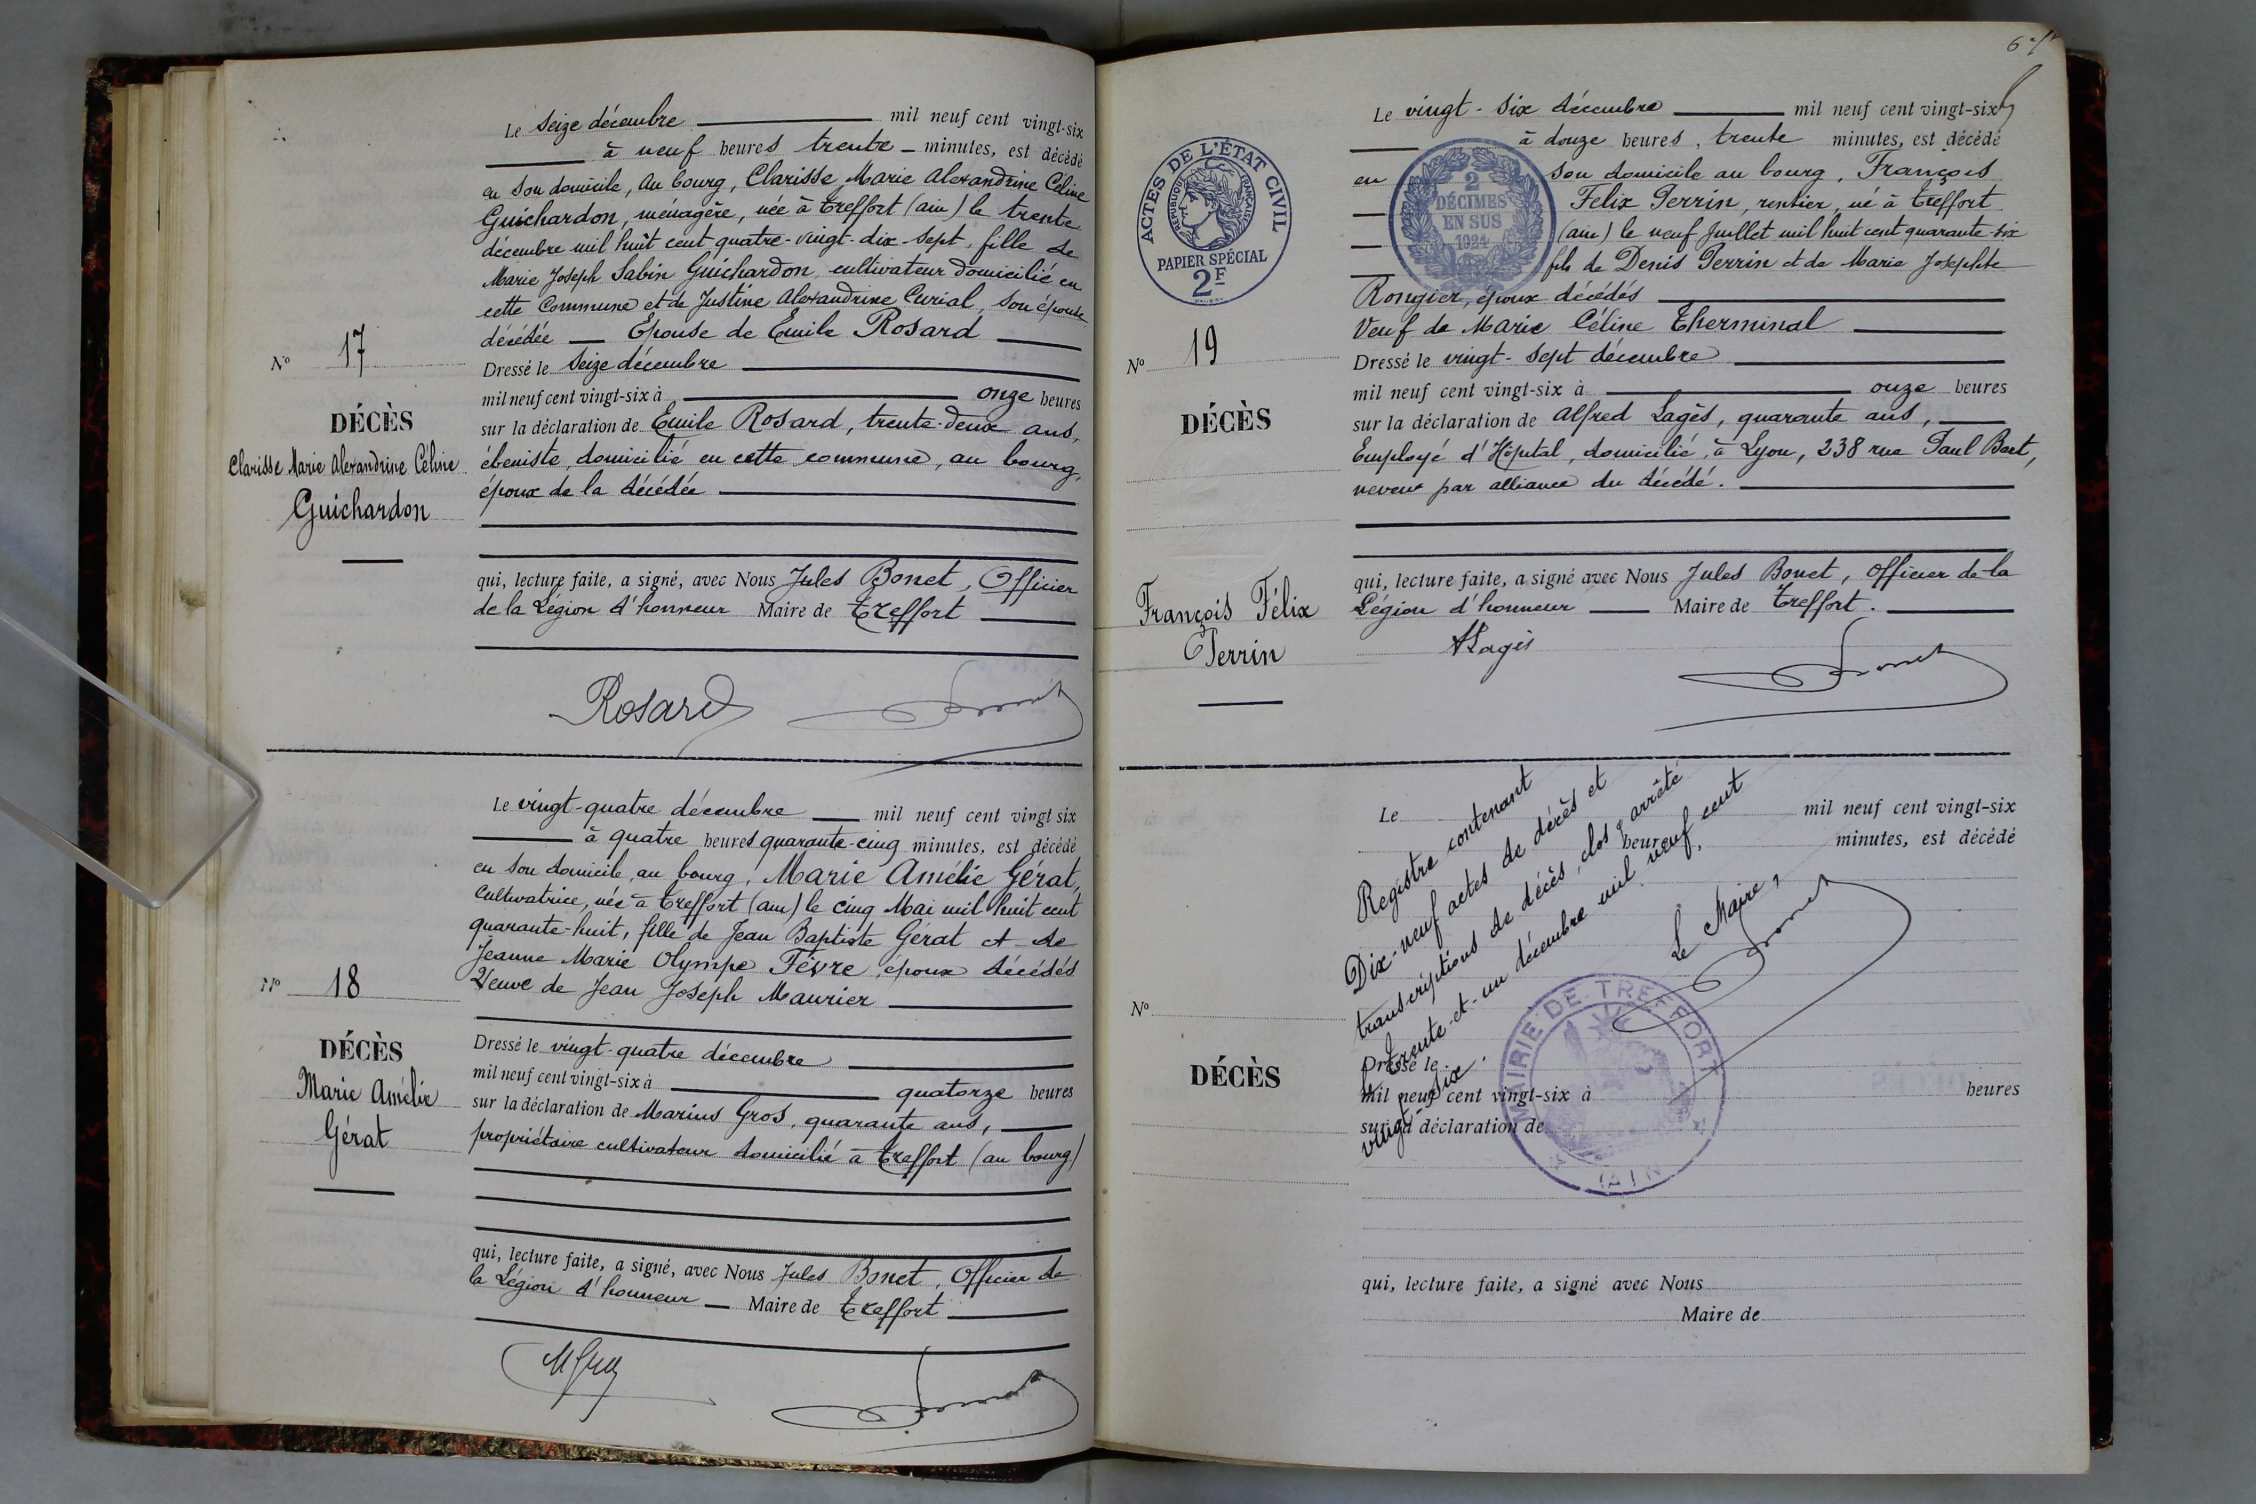 Le seize décembre mil neuf cent vingt-six
à neuf heures trente minutes, est décédé
en son domicile, au bourg, Clarisse Marie Alexandrine Céline
Guichardon, ménagère, née à Treffort (ain) le trente
décembre mil huit cent quatre-vingt-dix-sept, fille de
Marie Joseph Sabin Guichardon, cultivateur domicilié en
cette Commune et de Justine Alexandrine Curial, son épouse
décédée — Epouse de Emile Rosard
Nº 17
Dressé le seize décembre
mil neuf cent vingt-six à onze heures
DÉCÈS
sur la déclaration de Emile Rosard, trente-deux ans,
Clarisse Marie Alexandrine Céline
ébeniste, domicilié en cette commune, au bourg,
Guichardon
époux de la décédée
qui, lecture faite, a signé, avec Nous Jules Bonet, Officier
de la Légion d'honneur Maire de Treffort
Rosard
Le vingt-quatre décembre mil neuf cent vingt six
à quatre heures quarante-cinq minutes, est décédé
en son domicile, au bourg, Marie Amélie Gérat,
cultivatrice, née à Treffort (ain) le cinq Mai mil huit cent
quarante-huit, fille de Jean Baptiste Gérat et de
Jeanne Marie Olympe Févre, époux décédés
Nº 18
Veuve de Jean Joseph Maurier
DÉCÈS
Dressé le vingt-quatre décembre
Marie Amélie
mil neuf cent vingt-six à quatorze heures
sur la déclaration de Marius Gros, quarante ans,
Gérat
propriétaire cultivateur domicilié à Treffort (au bourg)
qui, lecture faite, a signé, avec Nous Jules Bonet, Officier de
la Légion d'honneur — Maire de Treffort
Le vingt-six décembre mil neuf cent vingt-six
à douze heures, trente minutes, est décédé
en son domicile au bourg, François
Felix Perrin, rentier, né à Treffort
(ain) le neuf Juillet mil huit cent quarante-six
fils de Denis Perrin et de Marie Josephte
Rongier, époux décédés
Veuf de Marie Céline Therminal
ACTES DE L'ÉTAT CIVIL
RÉPUBLIQUE FRANÇAISE
PAPIER SPÉCIAL
2F
2
DÉCIMES
EN SUS
1924
Nº 19
Dressé le vingt-sept décembre
mil neuf cent vingt-six à onze heures
DÉCÈS
sur la déclaration de Alfred Lagès, quarante ans,
Employé d'Hôpital, domicilié, à Lyon, 238 rue Paul Bert,
neveu par alliance du décédé.
qui, lecture faite, a signé avec Nous Jules Bonet, Officier de la
Légion d'honneur — Maire de Treffort.
François Félix
Perrin
ALagès
Le mil neuf cent vingt-six
heures minutes, est décédé
Registre contenant
Dix-neuf actes de décès et
transcriptions de décès, clos & arrêté
le trente-et-un décembre mil neuf cent
vingt-six.
Le Maire,
MAIRIE DE TREFFORT
AIN
Nº
DÉCÈS
Dressé le
mil neuf cent vingt-six à heures
sur la déclaration de
qui, lecture faite, a signé avec Nous
Maire de